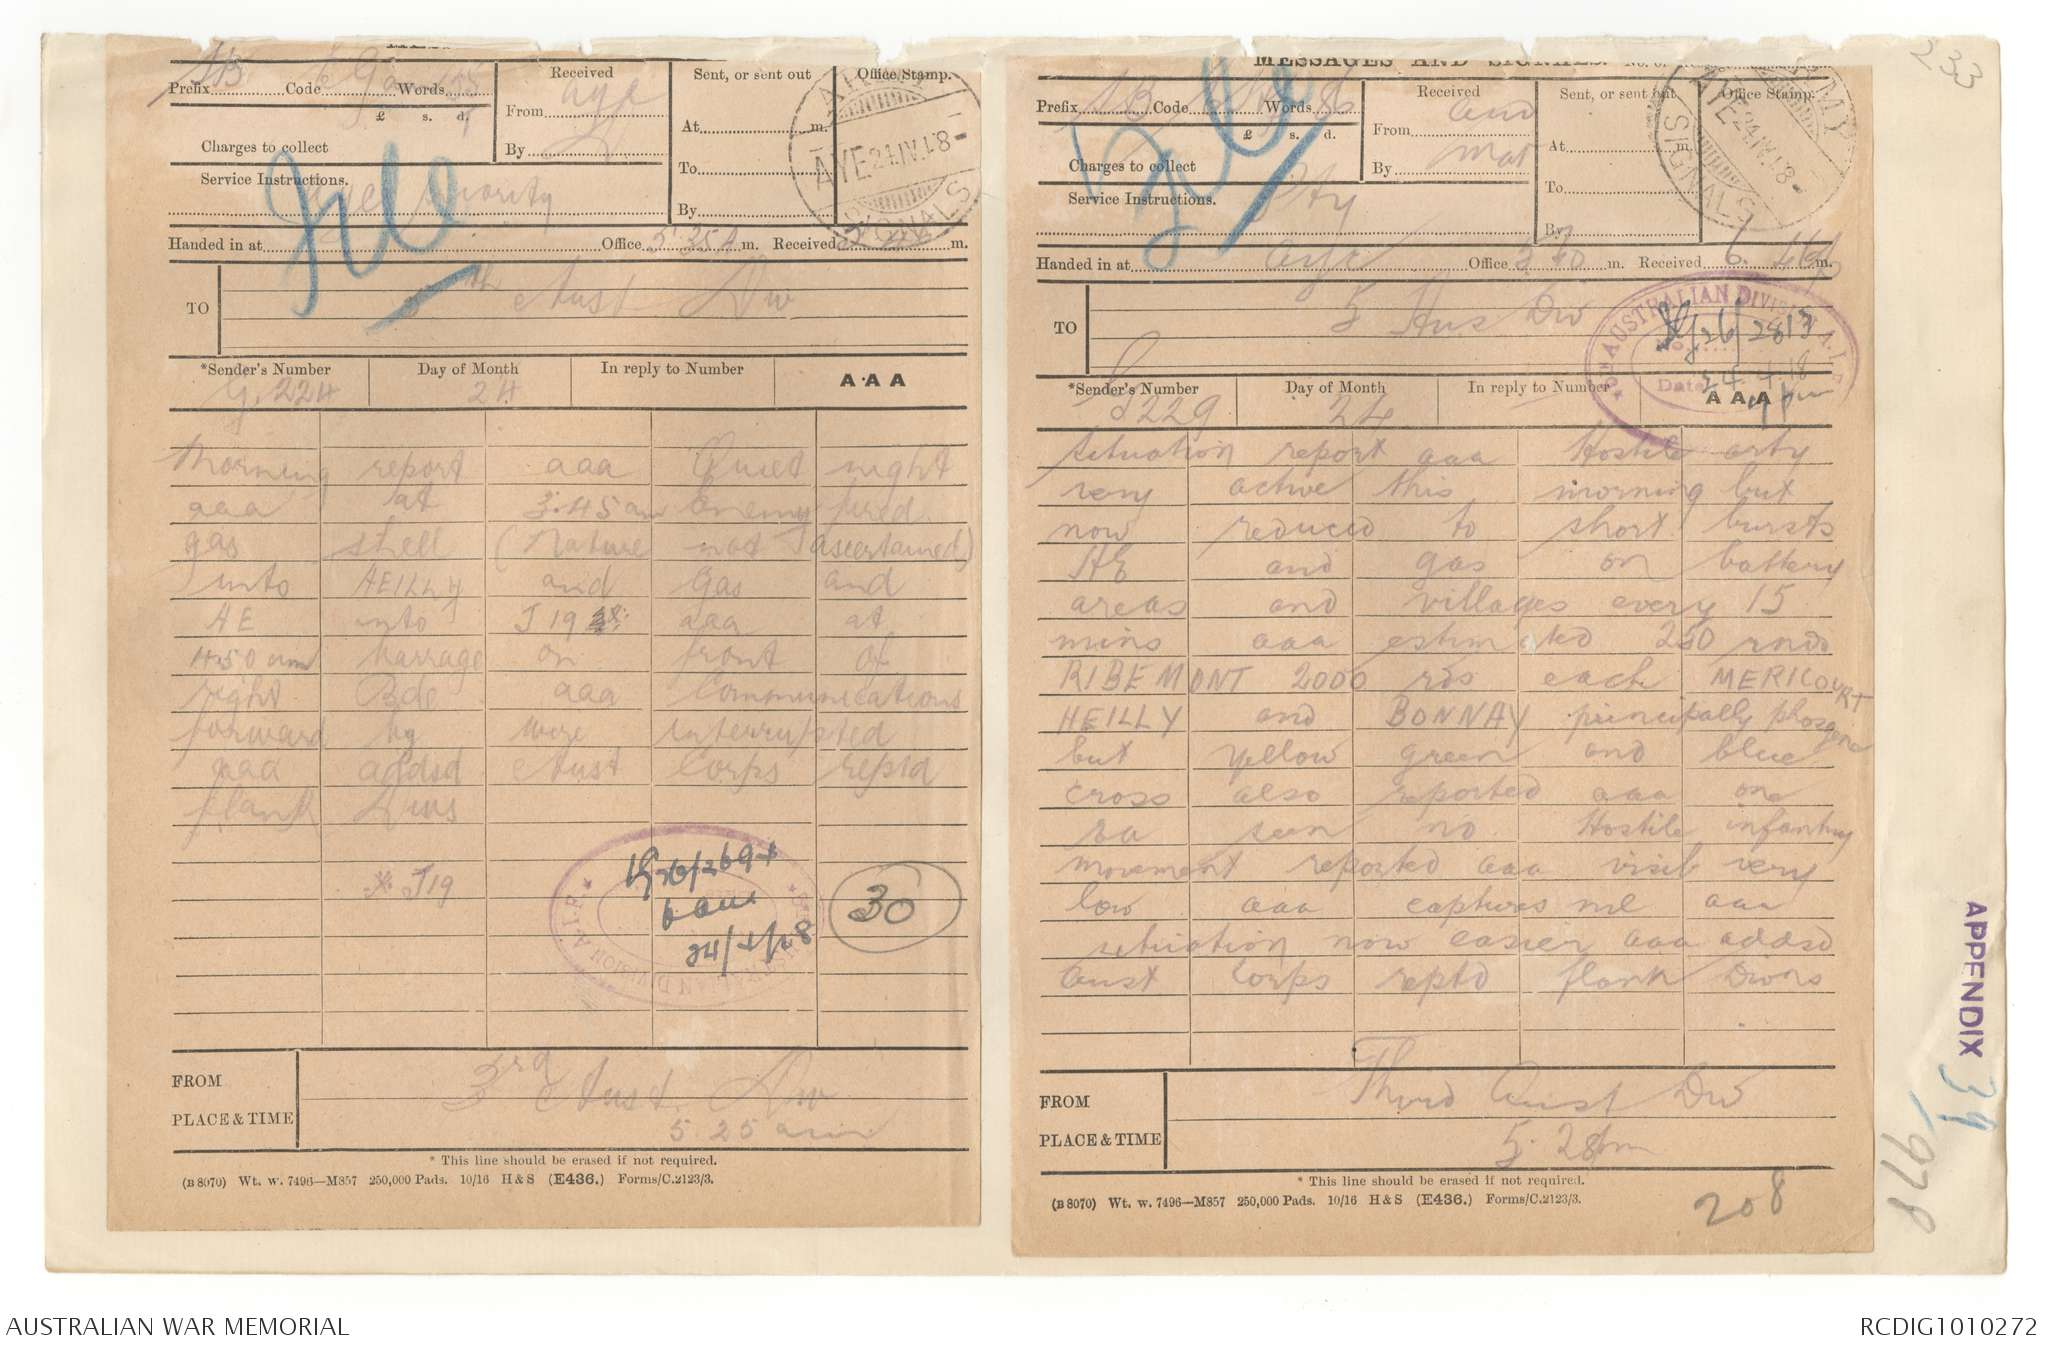 Prefix SB Code Words
Received
From aye
By
Sent, or sent out
At m.
To
By
Office Stamp.
ARMY
AYE 24.IV.18
SIGNALS
£ s. d.
Charges to collect
Service Instructions.
priority
File
Handed in at Office 5.35A m. Received m.
TO
5th Aust. Div
*Sender's Number
G.224
Day of Month
24
In reply to Number
AAA
Morning report aaa Quiet night
aaa at 3.45 am Enemy fired
gas shell (Nature not ascertained)
into HEILLY and Gas and
HE into J19 aaa at
4.50 am barrage on front of
right Bde aaa Communications
forward by were interrupted
aaa addsd Aust Corps reptd
flank Divs
* J19
30
6 am
24/4/18
AUSTRALIAN DIVISION A.I.F.
FROM
PLACE & TIME
3rd Aust. Div
5.25 am
* This line should be erased if not required.
(B 8070) Wt. w. 7496—M857 250,000 Pads. 10/16 H & S (E436.) Forms/C.2123/3.
MESSAGES AND SIGNALS.
233
Prefix SB Code Words
Received
From
By
Sent, or sent out
At m.
To
By
Office Stamp.
ARMY
AYE 24.IV.18
SIGNALS
£ s. d.
Charges to collect
Service Instructions.
Pty
File
Handed in at aye Office 5.40 m. Received 6. m.
TO
5 Aus Div
AUSTRALIAN DIVISION A.I.F.
Date 24.4.18
*Sender's Number
G229
Day of Month
24
In reply to Number
AAA
Situation report aaa Hostile arty
very active this morning but
now reduced to short bursts
HE and gas on battery
areas and villages every 15
mins aaa estimated 250 rnds
RIBEMONT 2000 rds each MERICOURT
HEILLY and BONNAY principally phosgene
but yellow green and blue
cross also reported aaa one
EA seen no Hostile infantry
movement reported aaa visib very
low aaa captures nil aaa
situation now easier aaa addsd
Aust Corps reptd flank Divns
FROM
PLACE & TIME
Third Aust Div
5.28pm
* This line should be erased if not required.
(B 8070) Wt. w. 7496—M857 250,000 Pads. 10/16 H & S (E436.) Forms/C.2123/3.
208
APPENDIX 39
AUSTRALIAN WAR MEMORIAL
RCDIG1010272